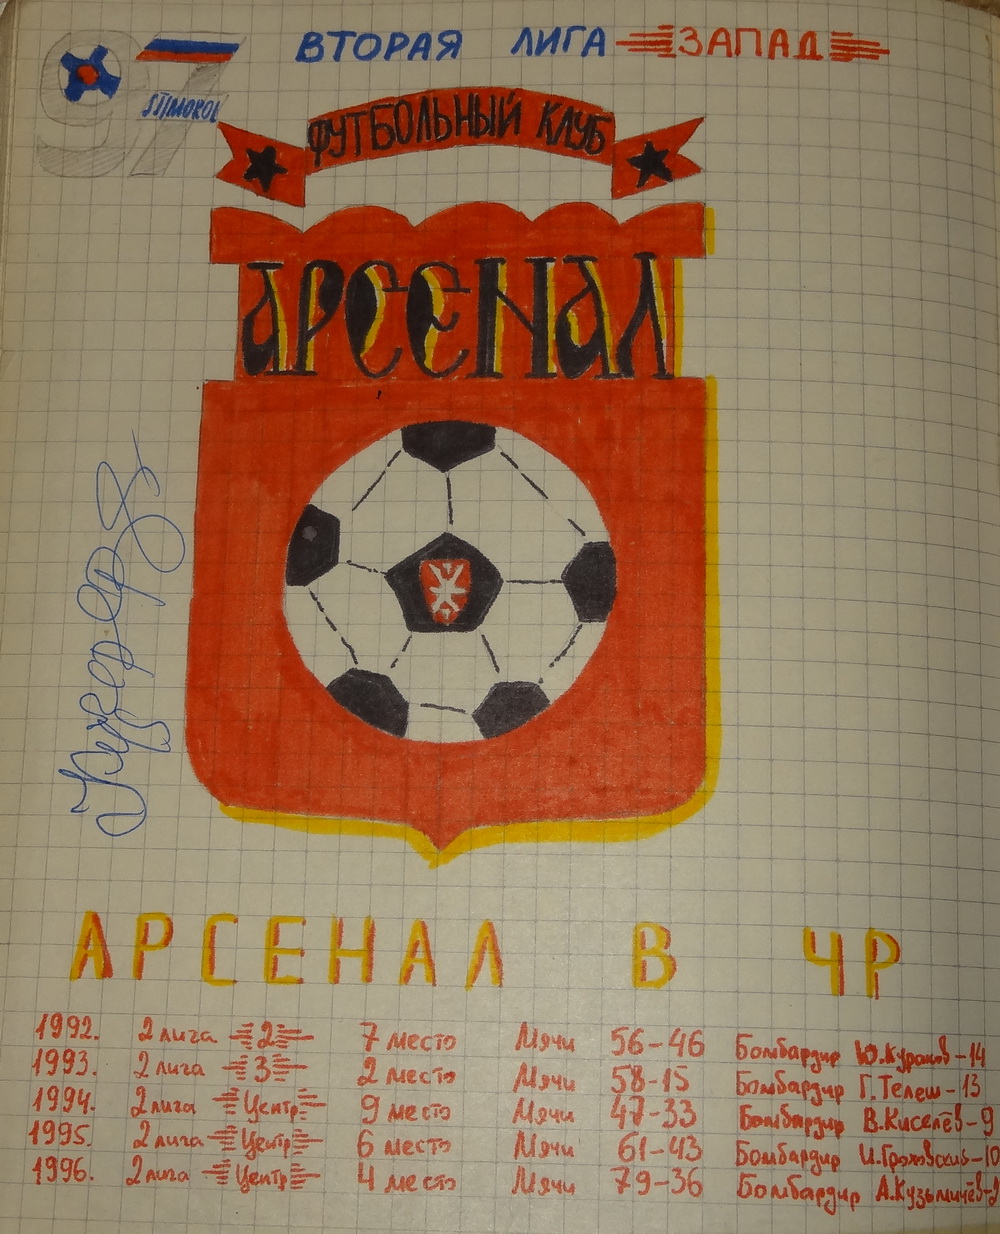 97
ВТОРАЯ ЛИГА ЗАПАД
STIMOROL
ФУТБОЛЬНЫЙ КЛУБ
АРСЕНАЛ
АРСЕНАЛ В ЧР
1992. 2 лига 2 7 место Мячи 56-46 Бомбардир Ю.Куранов-14
1993. 2 лига 3 2 место Мячи 58-15 Бомбардир Г.Телеш-13
1994. 2 лига Центр 9 место Мячи 47-33 Бомбардир В.Киселёв-9
1995. 2 лига Центр 6 место Мячи 61-43 Бомбардир И.Гроховский-10
1996. 2 лига Центр 4 место Мячи 79-36 Бомбардир А.Кузьмичёв